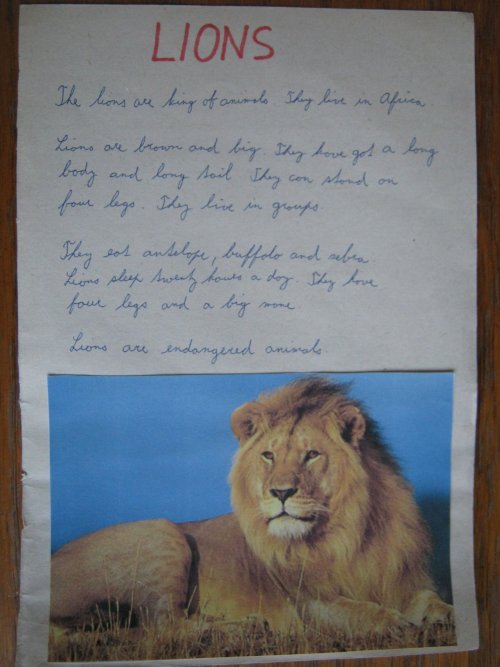 LIONS
The lions are king of animals. They live in Africa
Lions are brown and big. They have got a long
body and long tail They can stand on
four legs. They live in groups
They eat antelope, buffalo and zebra
Lions sleep twenty hours a day. They have
four legs and a big mane
Lions are endangered animals.